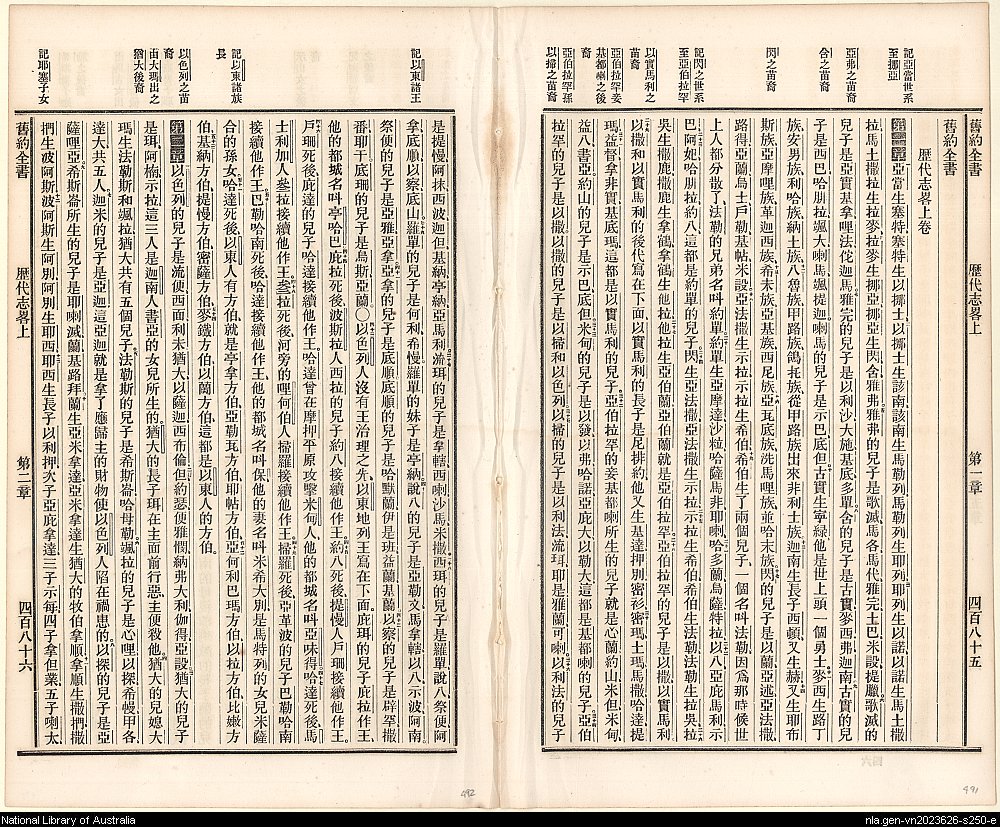 記亞當世系
至挪亞
亞弗之苗裔
含之苗裔
閃之苗裔
記閃之世系
至亞伯拉罕
以實馬利之
苗裔
亞伯拉罕妾
基都喇之後
裔
亞伯拉罕孫
以掃之苗裔
舊約全書
歷代志畧上
第一章
四百八十五
舊約全書
歷代志畧上卷
第一章亞當生塞特塞特生以挪士以挪士生該南該南生馬勒列馬勒列生耶列耶列生以諾以諾生馬土撒
拉馬土撒拉生拉麥拉麥生挪亞挪亞生閃含雅弗雅弗的兒子是歌滅馬各馬代雅完土巴米設提臘歌滅的
兒子是亞實基拿哩法陀迦馬雅完的兒子是以利沙大施基底多單含的兒子是古實麥西弗迦南古實的兒
子是西巴哈腓拉颯大喇馬颯提迦喇馬的兒子是示巴底但古實生寧錄他是世上頭一個勇士麥西生路丁
族安男族利哈族納土族八魯族甲路族鴿托族從甲路族出來非利士族迦南生長子西頓又生赫又生耶布
斯族亞摩哩族革迦西族希未族亞基族西尼族亞瓦底族洗馬哩族並哈末族閃的兒子是以蘭亞述亞法撒
路得亞蘭烏士戶勒基帖米設亞法撒生示拉示拉生希伯希伯生了兩個兒子一個名叫法勒因爲那時候世
上人都分散了法勒的兄弟名叫約單約單生亞摩達沙粒哈薩馬非耶喇哈多蘭烏薩特拉以八亞庇馬利示
巴阿妲哈腓拉約八這都是約單的兒子閃生亞法撒亞法撒生示拉示拉生希伯希伯生法勒法勒生拉吳拉
吳生鹿撒鹿撒生拿鶴拿鶴生他拉他拉生亞伯蘭亞伯蘭就是亞伯拉罕亞伯拉罕的兒子是以撒以實馬利
以撒和以實馬利的後代寫在下面以實馬利的長子是尼排約他又生基達押別密衫密瑪土瑪馬撒哈達提
瑪益督拿非實基底瑪這都是以實馬利的兒子亞伯拉罕的妾基都喇所生的兒子就是心蘭約山米但米甸
益八書亞約山的兒子是示巴底但米甸的兒子是以發以弗哈諾亞庇大以勒大這都是基都喇的兒子亞伯
拉罕的兒子是以撒以撒的兒子是以掃和以色列以掃的兒子是以利法流珥耶是雅蘭可喇以利法的兒子
491
記以東諸王
記以東諸族
長
以色列之苗
裔
由大瑪出之
猶大後裔
記耶塞子女
是提慢阿抹西波迦但基納亭納亞馬利流珥的兒子是拿轄西喇沙馬米撒西珥的兒子是羅單說八祭便阿
拿底順以察底山羅單的兒子是何利希慢羅單的妹子是亭納說八的兒子是亞勒文馬拿轄以八示波阿南
祭便的兒子是亞雅亞拿亞拿的兒子是底順底順的兒子是哈默蘭伊是班益蘭基蘭以察的兒子是辟罕撒
番耶干底珊的兒子是烏斯亞蘭〇以色列人沒有王治理之先以東地列王寫在下面庇珥的兒子庇拉作王
他的都城名叫亭哈巴庇拉死後波斯拉人西拉的兒子約八接續他作王約八死後提慢人戶珊接續他作王
戶珊死後庇達的兒子哈達接續他作王哈達曾在摩押平原攻擊米甸人他的都城名叫亞味得哈達死後馬
士利加人桑拉接續他作王桑拉死後河旁的哩何伯人掃羅接續他作王掃羅死後亞革波的兒子巴勒哈南
接續他作王巴勒哈南死後哈達接續他作王他的都城名叫保他的妻名叫米希大別是馬特列的女兒米薩
合的孫女哈達死後以東人有方伯就是亭拿方伯亞勒瓦方伯耶帖方伯亞何利巴瑪方伯以拉方伯比嫩方
伯基納方伯提慢方伯密薩方伯麥鐵方伯以蘭方伯這都是以東人的方伯
第二章以色列的兒子是流便西面利未猶大以薩迦西布倫但約瑟便雅憫納弗大利伽得亞設猶大的兒子
是珥阿楠示拉這三人是迦南人書亞的女兒所生的猶大的長子珥在主面前行惡主便殺他猶大的兒媳大
瑪生法勒斯和颯拉猶大共有五個兒子法勒斯的兒子是希斯崙哈母勒颯拉的兒子是心哩以探希幔甲各
達大共五人迦米的兒子是亞迦這亞迦就是拿了應歸主的財物使以色列人陷在禍患的以探的兒子是亞
薩哩亞希斯崙所生的兒子是耶喇滅蘭基路拜蘭生亞米拿達亞米拿達生猶大的牧伯拿順拿順生撒捫撒
捫生波阿斯波阿斯生阿別阿別生耶西耶西生長子以利押次子亞庇拿達三子示每四子拿但業五子喇太
舊約全書
歷代志畧上
第二章
四百八十六
492
National Library of Australia
nla.gen-vn2023626-s250-e